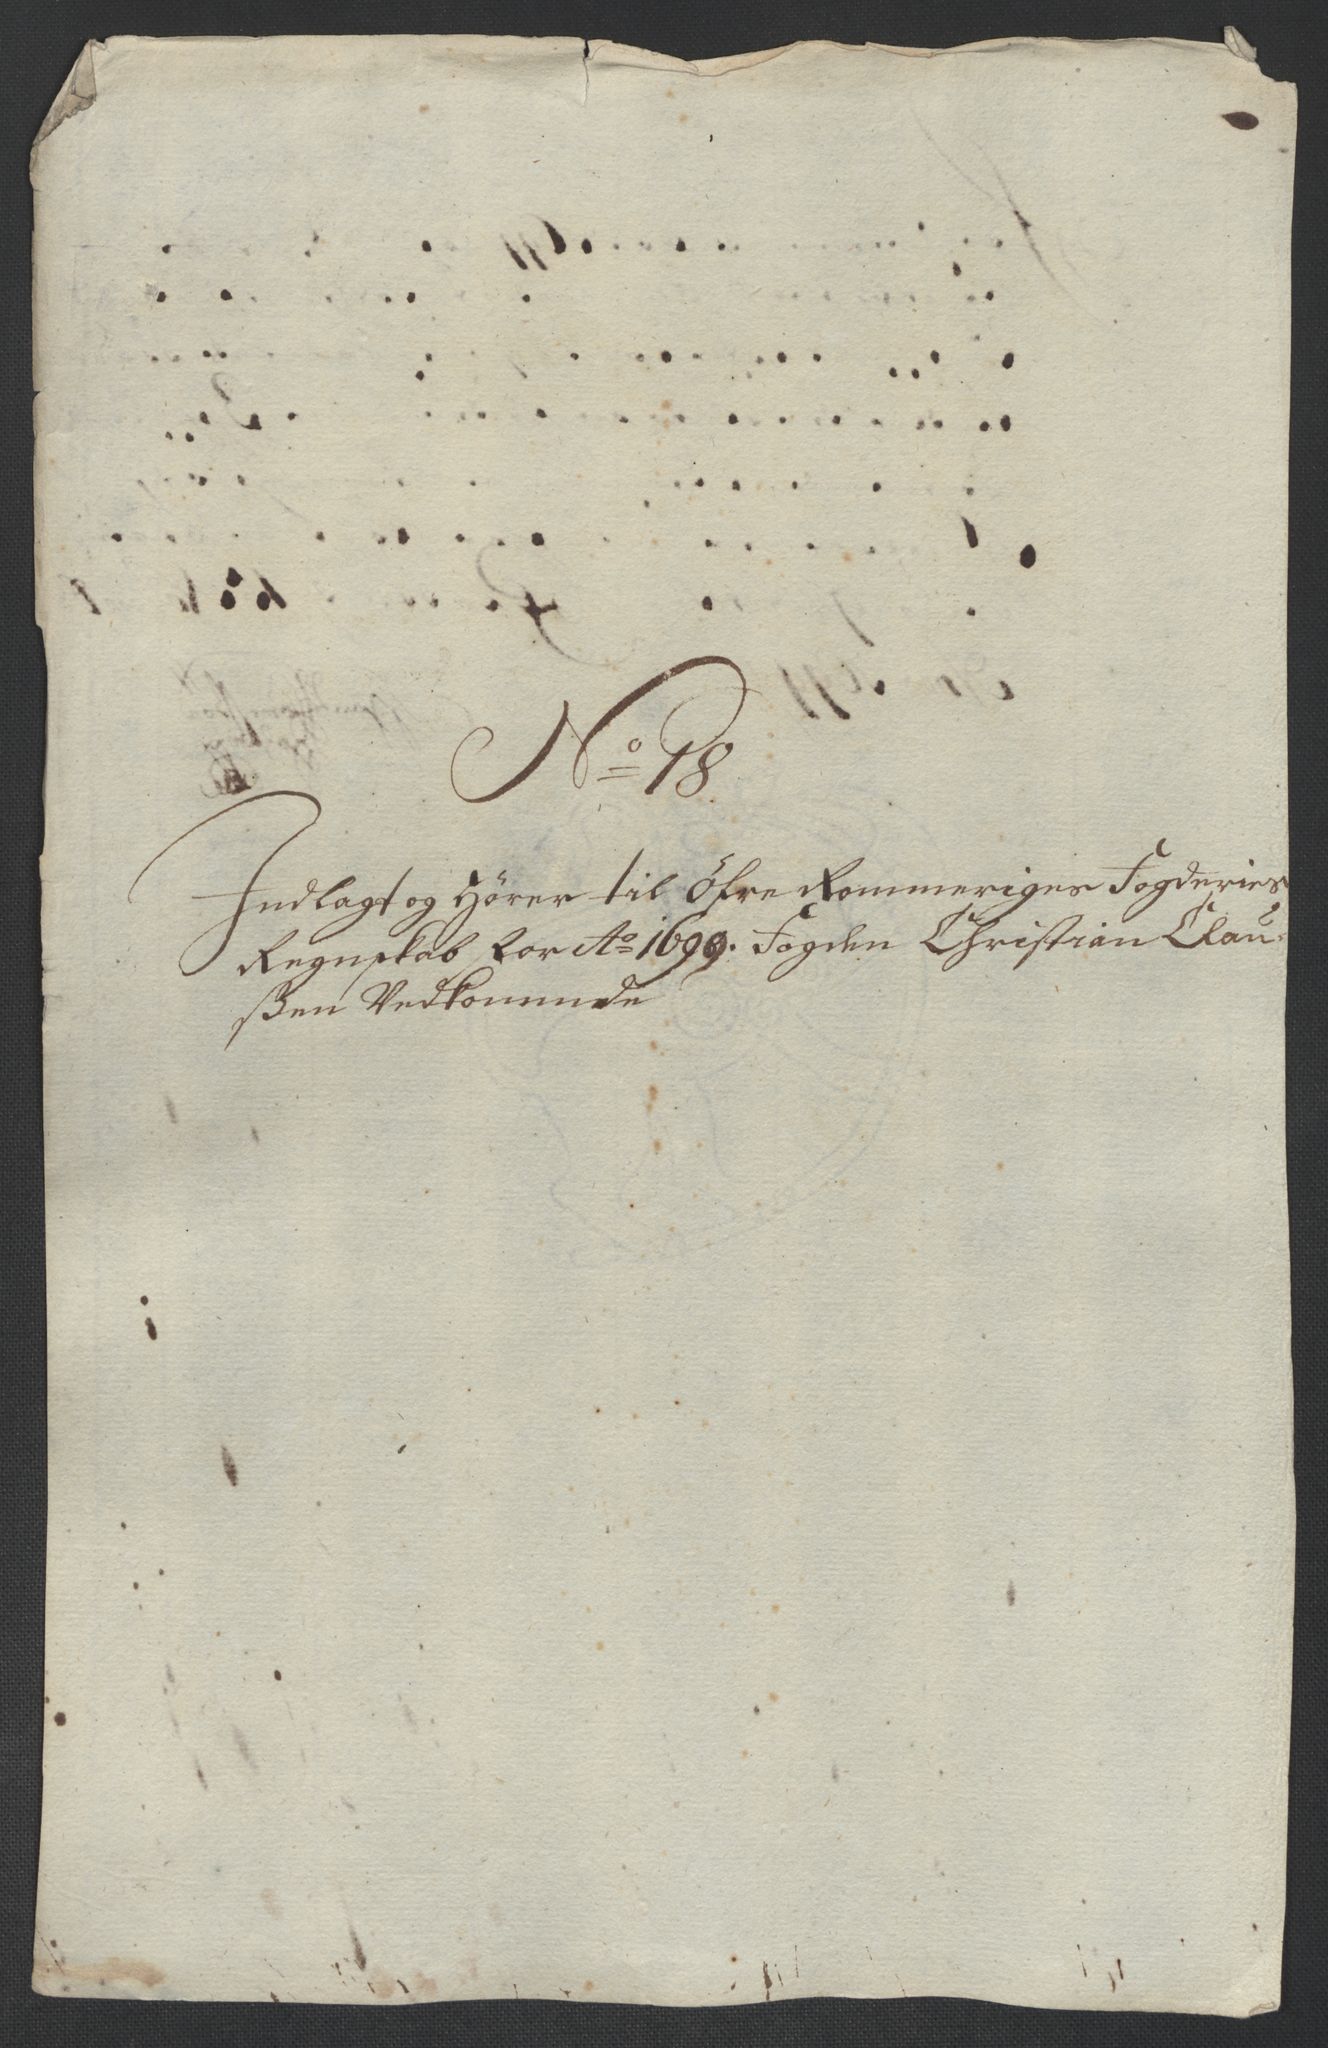 No 18
Indlagt og Hører til Öfre Rommeriges Fogderies
Regnskab for Ao 1699. Fogden Christian Clau-
ßen Vedkommnde